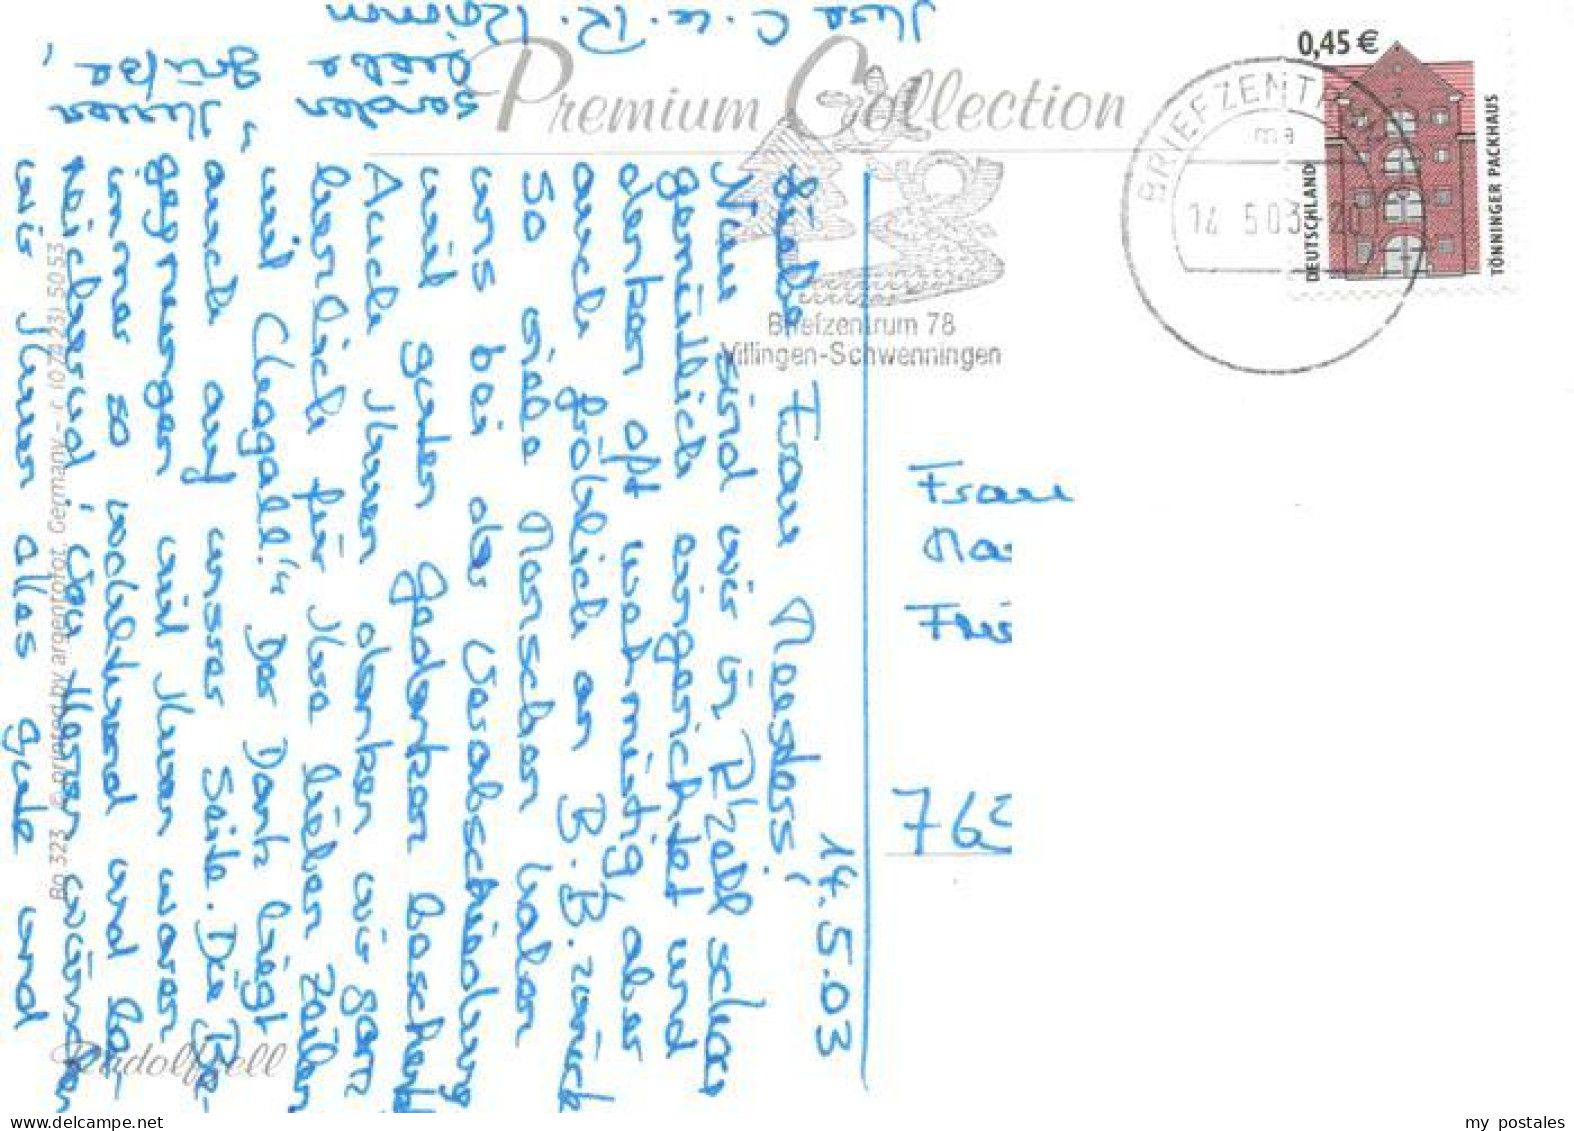 Premium Collection
0,45 €
DEUTSCHLAND
TÖNNINGER PACKHAUS
BRIEFZENTRUM
14.5.03-20
Briefzentrum 78
Villingen-Schwenningen
14.5.03
Liebe Frau
Nun sind wir in R'zell schon
gemütlich eingerichtet und
denken oft wehmütig, aber
auch fröhlich an B.B. zurück
So viele Menschen haben
uns bei der Verabschiedung
mit guten Gedanken beschenkt
Auch Ihnen danken wir ganz
herzlich für Ihre lieben Zeilen
mit Chagall!" Der Dank liegt
auch auf unserer Seite. Die Be-
gegnungen mit Ihnen waren
immer so wohltuend und be-
reichernd; von Herzen wünschen
wir Ihnen alles Gute und
senden Ihnen
liebe Grüße,
Ihre C. u. R.
Frau
Na
Fris
76
Bo 323 © printed by argentorot, Germany - T. (0 74 23) 50 53
Radolfzell
www.delcampe.net
my_postales